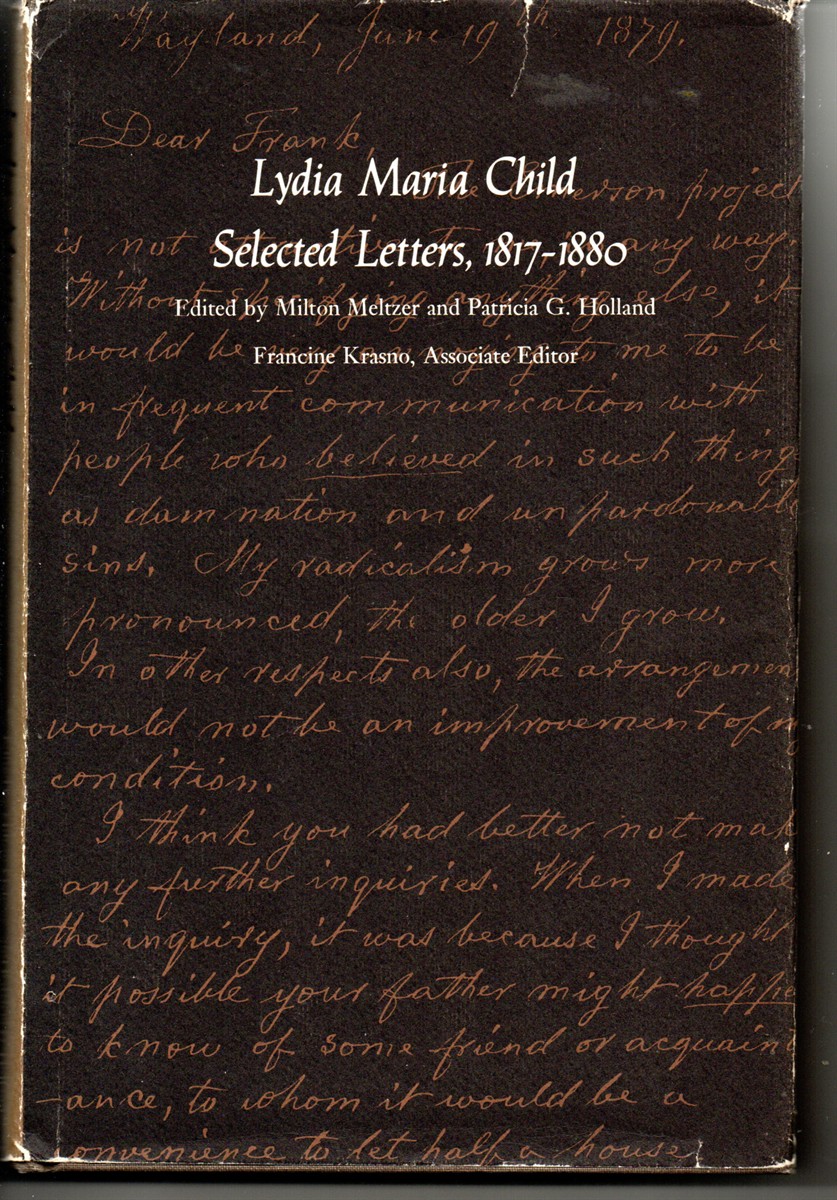 Wayland, June 19th 1879.
Dear Frank,
Lydia Maria Child
The Emerson project
Selected Letters, 1817-1880
is not attractive to me in any way.
Edited by Milton Meltzer and Patricia G. Holland
Without specifying anything else, it
would be very annoying to me to be
Francine Krasno, Associate Editor
in frequent communication with
people who believed in such thing
as damnation and unpardonable
sins. My radicalism grows more
pronounced, the older I grow.
In other respects also, the arrangemen
would not be an improvement of m
condition.
I think you had better not mak
any further inquiries. When I made
the inquiry, it was because I thought
it possible your father might happe
to know of some friend or acquain
-ance, to whom it would be a
convenience to let half a house